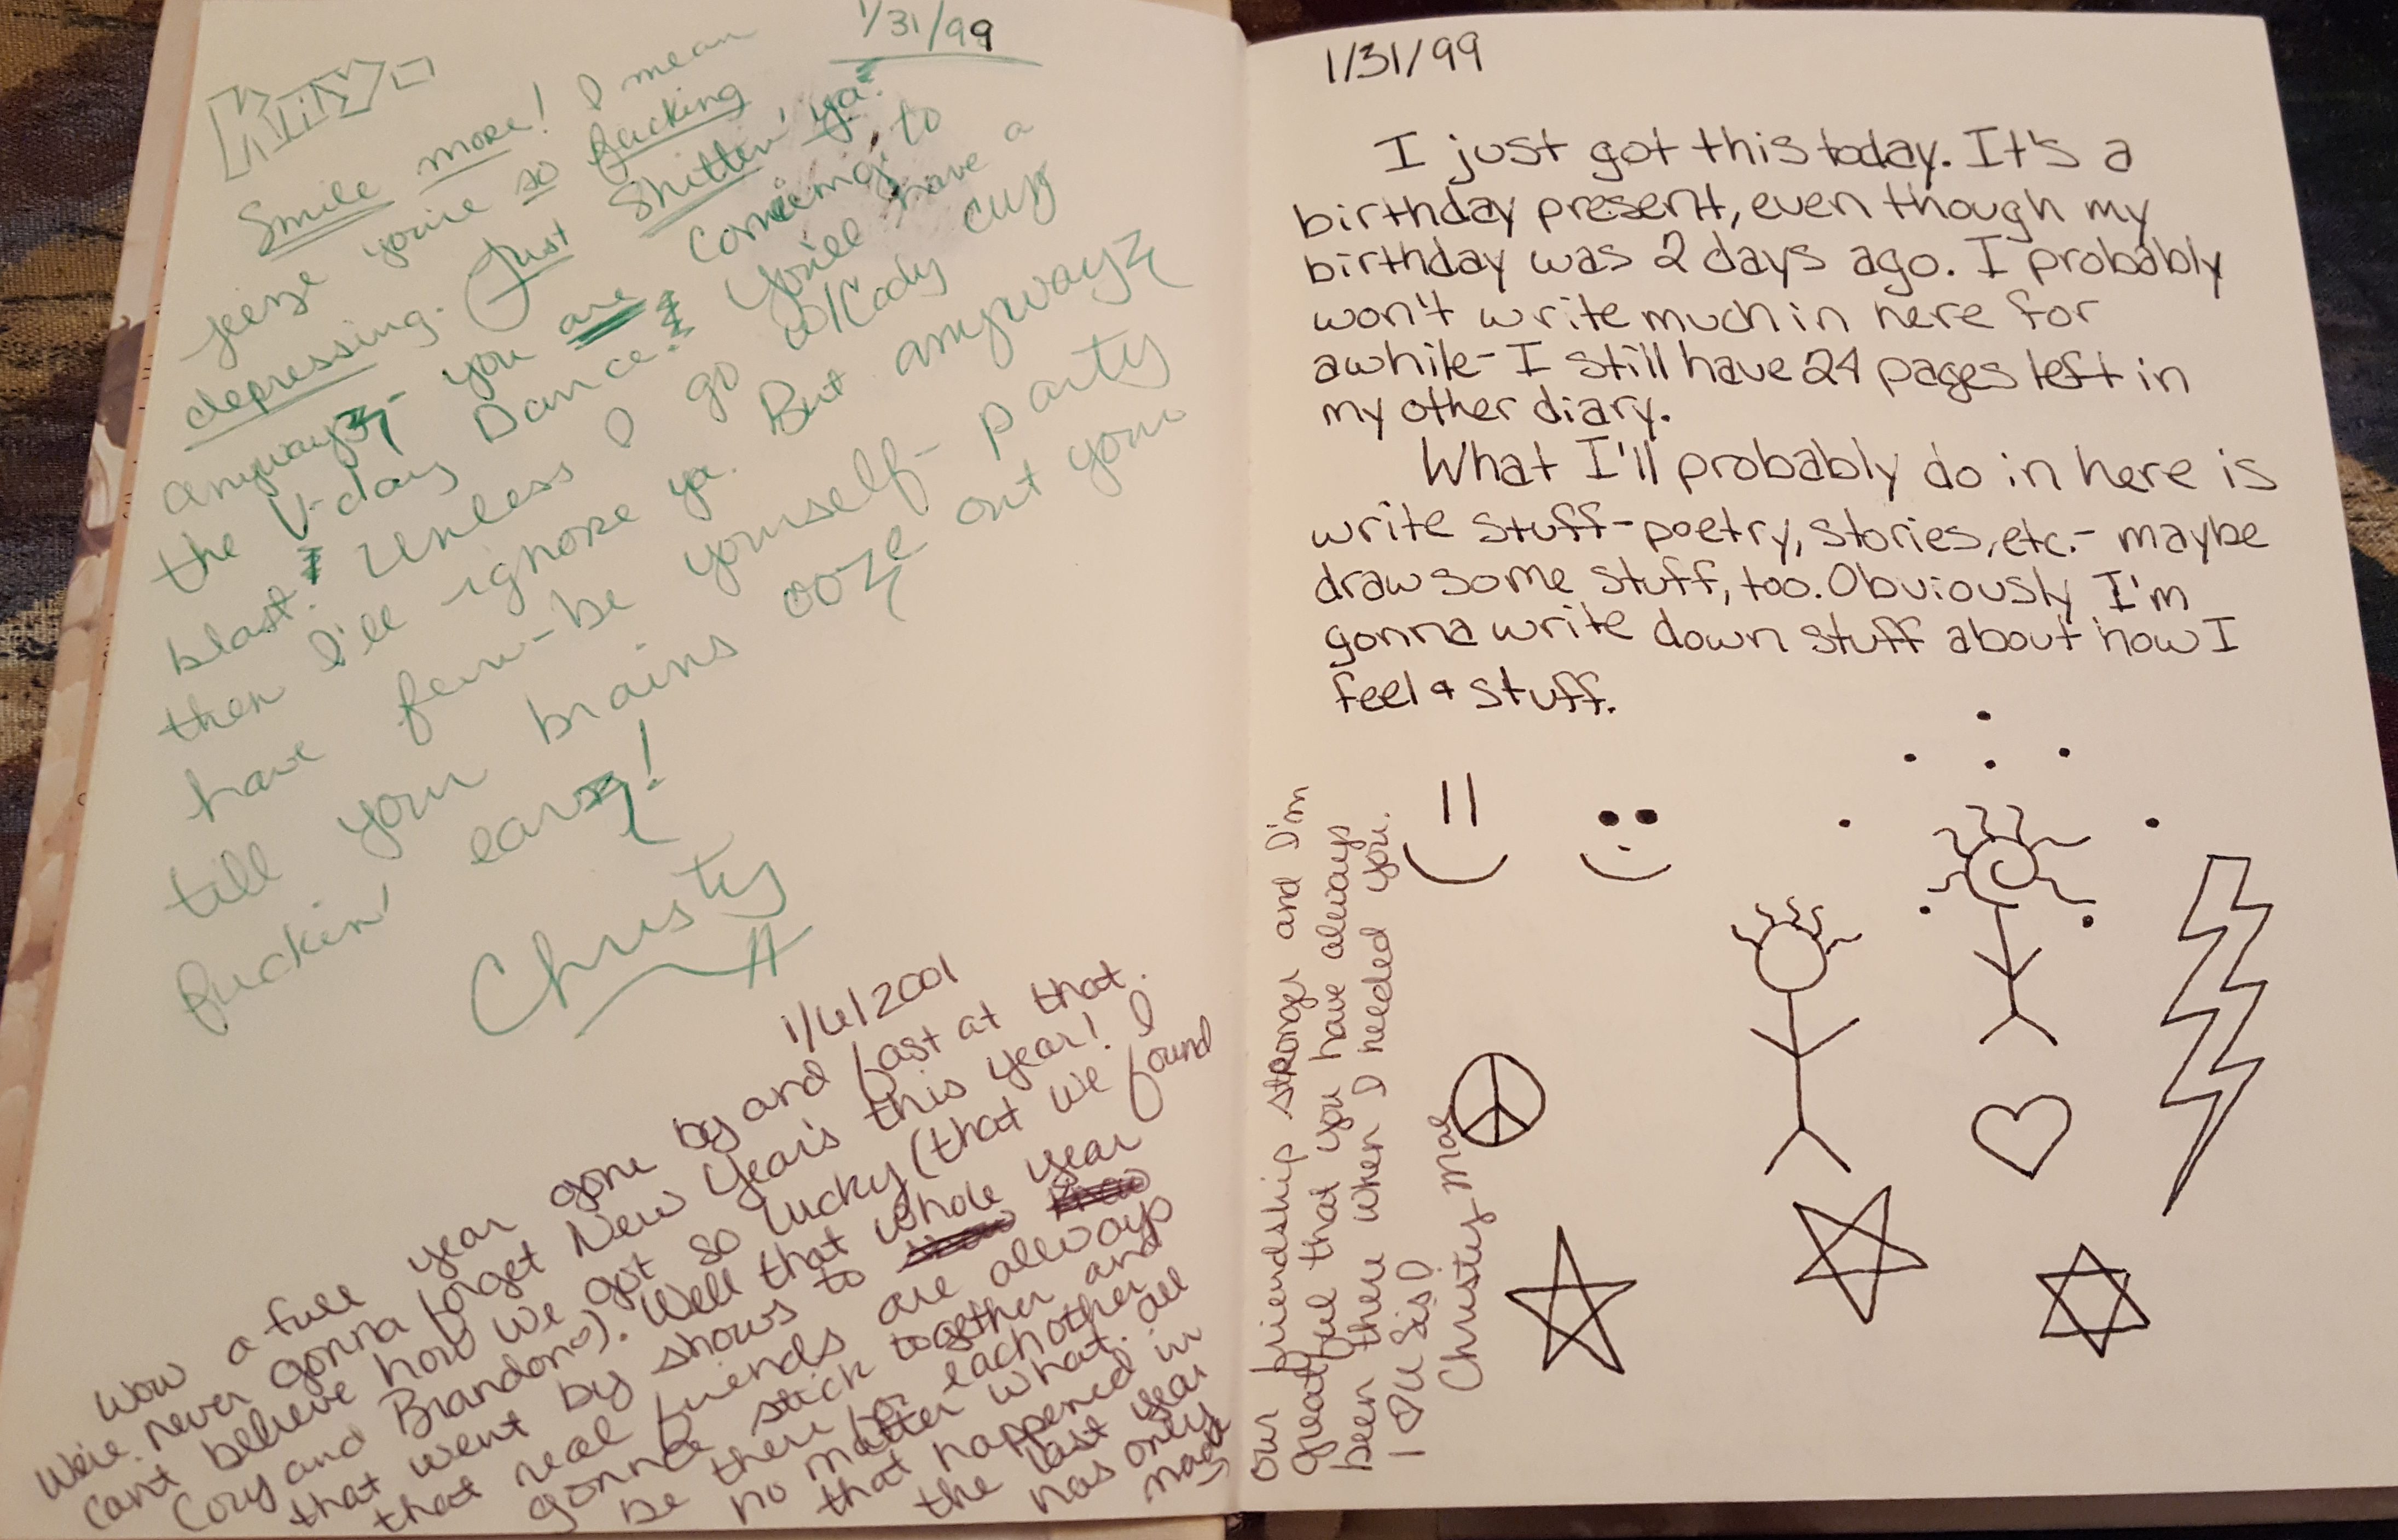 1/31/99
Smile more! I mean
jeeze you're so fucking
depressing. Just Shitten' ya!
anywayz- you are coming to
the V-day Dance! You'll have a
blast! Unless I go w/Cody cuz
then I'll ignore ya. But anywayz
have fun-be yourself-party
till your brains ooze out your
fuckin' earz!
Christy
1/6/2001
Wow a full year gone by and fast at that.
We're never gonna forget New Year's this year! I
can't believe how we got so lucky (that we found
Cory and Brandon). Well that whole year
that went by shows to
that real friends are always
gonna stick together and
be there for eachother
no matter what. all
that happened in
the last year
has only
made
our friendship stronger and I'm
greatful that you have always
been there when I needed you.
I ♡ U Sis!
Christy Mae
1/31/99
I just got this today. It's a
birthday present, even though my
birthday was 2 days ago. I probably
won't write much in here for
awhile- I still have 24 pages left in
my other diary.
What I'll probably do in here is
write stuff-poetry, stories, etc.- maybe
draw some stuff, too. Obviously I'm
gonna write down stuff about how I
feel & stuff.